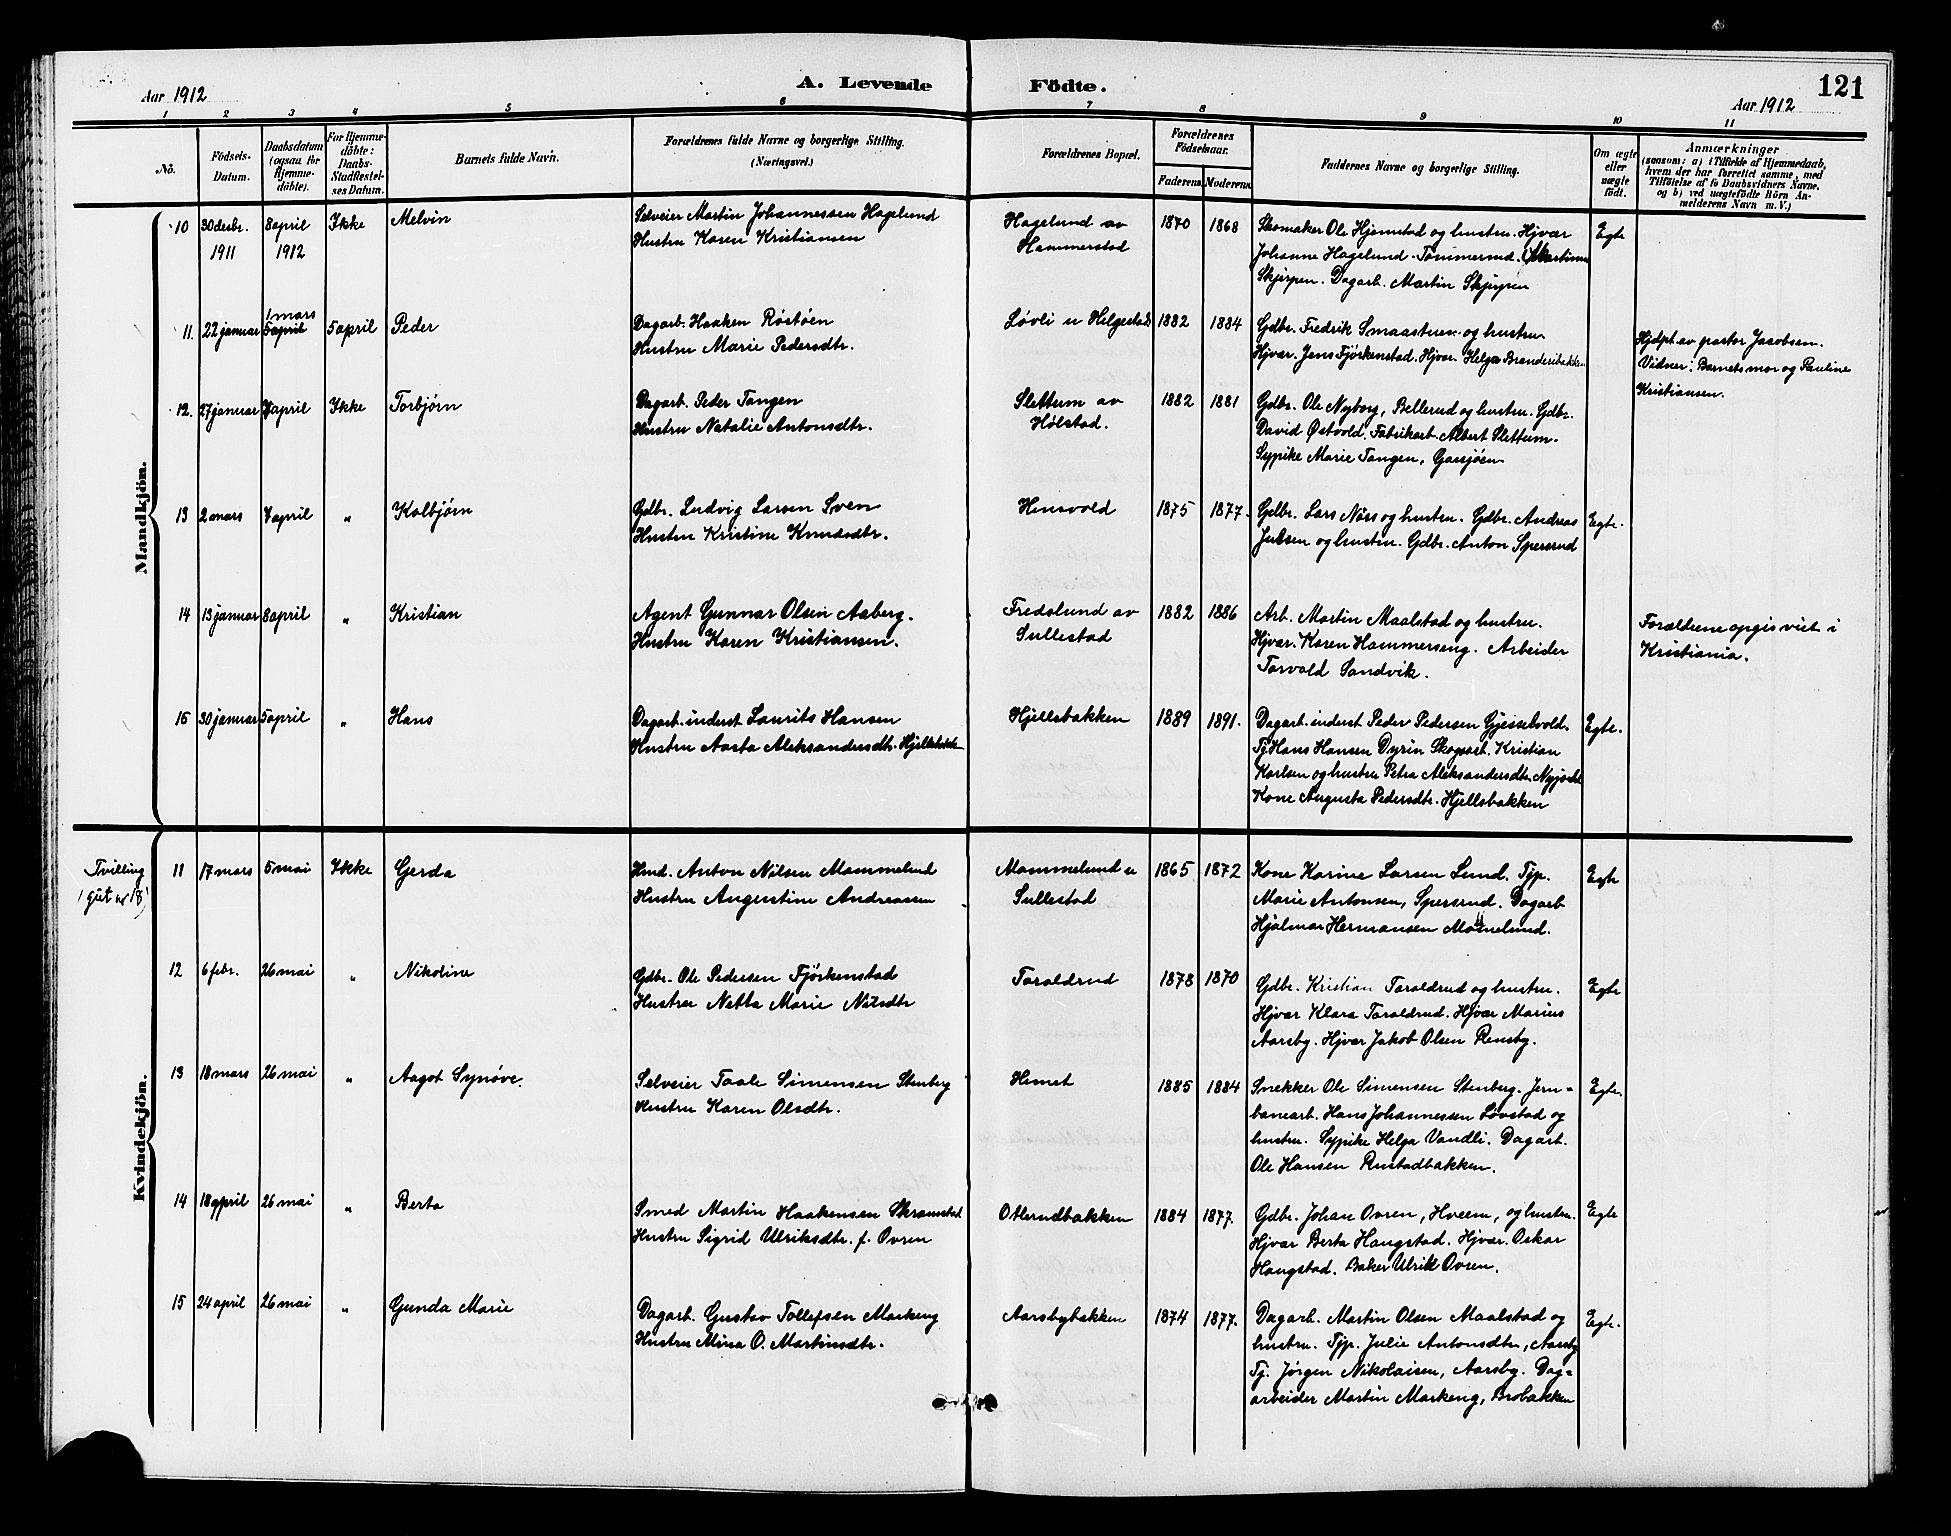 121
Aar 1912
A. Levende Födte.
Aar 1912
1 2 3 4 5 6 7 8 9 10 11
No.
Födsels-Datum.
Daabsdatum (ogsaa for Hjemme-döbte).
For Hjemme-döbte: Daabs-Stadfæstel-ses Datum.
Barnets fulde Navn.
Forældrenes fulde Navne og borgerlige Stilling. (Næringsvei.)
Forældrenes Bopæl.
Forældrenes Födselsaar.
Faderens Moderens
Faddernes Navne og borgerlige Stilling.
Om ægte eller uægte födt.
Anmærkninger
(saasom: a) i Tilfælde af Hjemmedaab,
hvem der har forrettet samme, med
Tilföielse af to Daabsvidners Navne,
og b) ved uægtefödte Börn An-
melderens Navn m. V.)
Mandkjön.
10 30 desbr. 1911 8 april 1912 Ikke Melvin
Selveier Martin Johannessen Hagelund
Hustru Karen Kristiansen
Hagelund av
Hammerstad
1870 1868
Skomaker Ole Hjemstad og hustru. Hjvær
Johanne Hagelund. Tømmermd. Martinus
Skjerpen. Dagarb. Martin Skjerpen
Egte
11. 22 januar 1 mars 5 april 5 april Peder
Dagarb. Haaken Røstøen
Hustru Marie Pedersdtr.
Løvli u Helgestad
1882 1884
Gdbr. Fredrik Smaastuen og hustru
Hjvær. Jens Fjørkenstad. Hjvær. Helga Branderibakken
Hjdpt. av pastor Jacobsen.
Vidner: Barnets mor og Pauline
Kristiansen.
12. 27 januar 7 april Ikke Torbjørn
Dagarb. Peder Tangen
Hustru Natalie Antonsdtr.
Slettum av
Hølstad.
1882 1881
Gdbr. Ole Nyborg, Bellerud og hustru. Gdbr.
David Østvold. Fabrikarb. Albert Slettum.
Sypike Marie Tangen, Gaasjøen
13 2 mars 7 april " Kolbjørn
Gdbr. Ludvig Larsen Sven
Hustru Kristine Knudsdtr.
Hensvold
1875 1877.
Gdbr. Lars Nøss og hustru. Gdbr. Andreas
Julsen og hustru. Gdbr. Anton Spersrud
Egte.
14 13 januar 8 april " Kristian
Agent Gunnar Olsen Aaberg.
Hustru Karen Kristiansen.
Fredslund av
Sullestad
1882 1886
Arb. Martin Maalstad og hustru.
Hjvær. Karen Hammerseng. Arbeider
Torvald Sandvik.
Forældrene opgis viet i
Kristiania.
15 30 januar 5 april " Hans
Dagarb. inderst Laurits Hansen
Hustru Aasta Aleksandersdtr. Hjellsbakken
Hjellsbakken
1889 1891.
Dagarb. inderst Peder Pedersen Gjesselvold.
Tj. Hans Hansen Dyrin. Skogsarb. Kristian
Karlsen og hustru Petra Aleksandersdtr.
Kone Augusta Pedersdtr. Hjellsbakken
Egte.
Kvindekjön.
Tvilling
(gut nr 18)
11 17 mars 5 mai Ikke Gerda
Hmd. Anton Nilsen Mammelund
Hustru Augustine Andreassen
Mammelund u
Sullestad
1865 1872
Kone Karine Larsen Lund. Tjp.
Marie Antonsen, Spersrud. Dagarb
Hjalmar Hermansen Mamelund.
Egte
12 6 febr. 26 mai " Nikoline
Gdbr. Ole Pedersen Fjørkenstad
Hustru Netta Marie Nilsdtr
Taraldrud
1878 1870
Gdbr. Kristian Taraldrud og hustru.
Hjvær Klara Taraldrud. Hjvær Marius
Aarsby. Hjvær Jakob Olsen Rensby.
Egte
13 18 mars 26 mai " Aagot Synøve.
Selveier Taale Simensen Stenberg
Hustru Karen Olsdtr.
Hemet
1885 1884
Snekker Ole Simensen Stenberg. Jern-
banearb. Hans Johannessen Løvstad og
hustru. Sypike Helga Vandli. Dagarb.
Ole Hansen Rustadbakken.
Egte.
14 18 april 26 mai " Berta
Smed Martin Haakensen Skramstad
Hustru Sigrid Ulriksdtr. f. Ovren
Otterudbakken
1884 1877.
Gdbr. Johan Ovren, Hveem, og hustru.
Hjvær Berta Haugstad. Hjvær. Oskar
Haugstad. Baker Ulrik Ovren.
Egte
15 24 april 26 mai " Gunda Marie
Dagarb. Gustav Tollefsen Markeng
Hustru Mina O. Martinsdtr.
Aarsbybakken
1874 1877.
Dagarb. Martin Olsen Maalstad og
hustru. Tjp. Julie Antonsdtr, Aarsby
Tj. Jørgen Nikolaisen, Aarsby. Dag-
arbeider Martin Markeng, Brobakken
Egte.